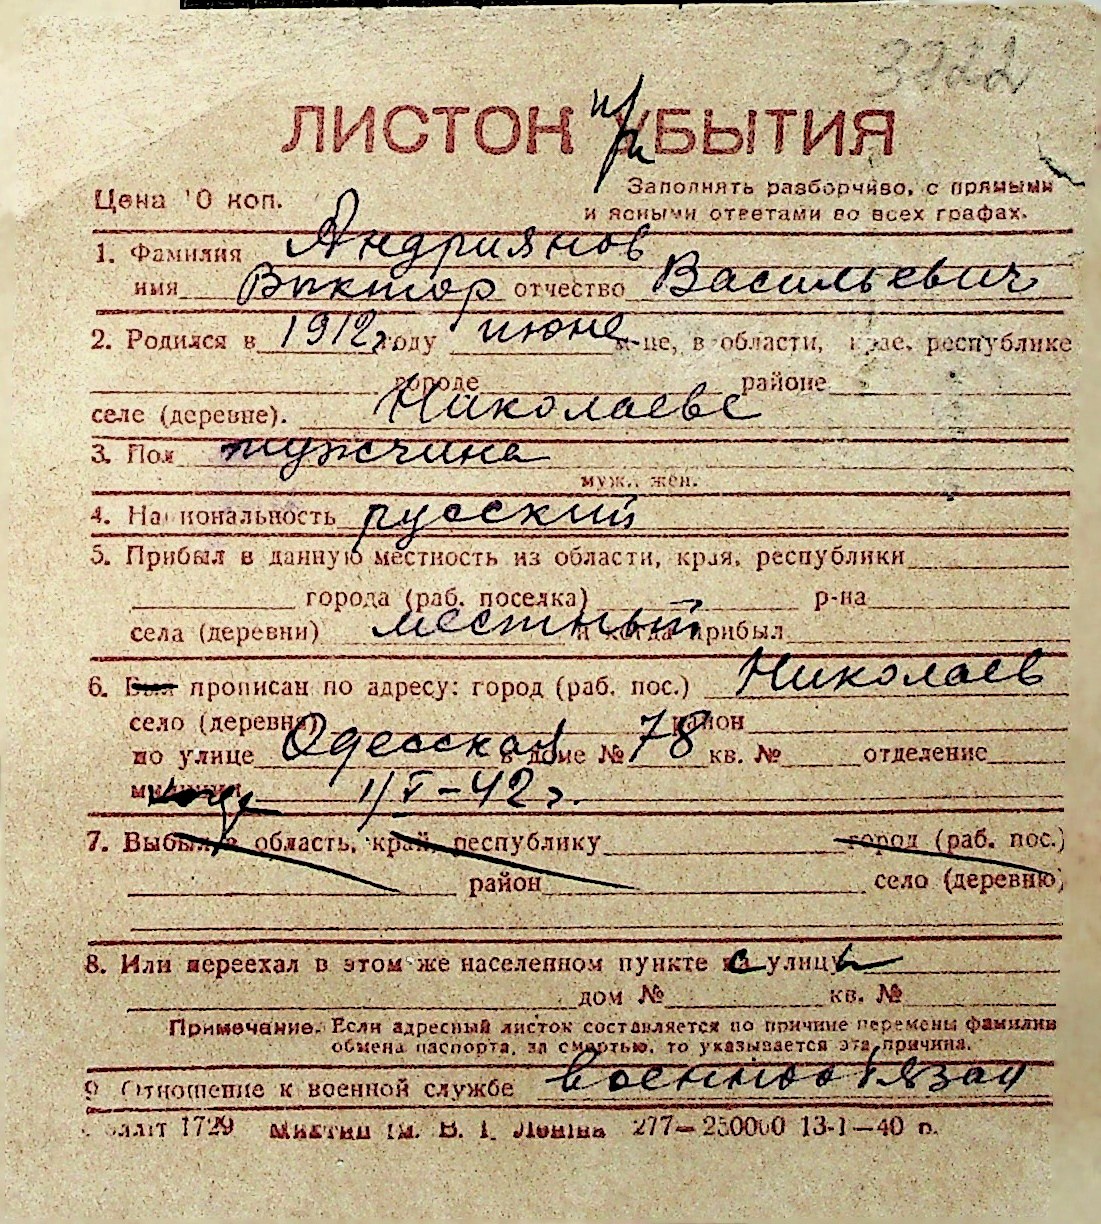 3722
ЛИСТОК при УБЫТИЯ
Цена 10 коп.
Заполнять разборчиво, с прямыми
и ясными ответами во всех графах.
1. Фамилия Андриянов
имя Виктор отчество Васильевич
2. Родился в 1912 г. году июне м-це, в области, крае, республике
городе районе
селе (деревне). Николаеве
3. Пол мужчина
муж., жен.
4. Национальность русский
5. Прибыл в данную местность из области, края, республики
города (раб. поселка) р-на
села (деревни) местный и когда прибыл
6. Был прописан по адресу: город (раб. пос.) Николаев
село (деревня) район
по улице Одесская в доме № 78 кв. № отделение
милиции 1/I-42 г.
7. Выбыл в область, край, республику город (раб. пос.)
район село (деревню)
8. Или переехал в этом же населенном пункте с улицы
дом № кв. №
Примечание. Если адресный листок составляется по причине перемены фамилии
обмена паспорта, за смертью, то указывается эта причина.
9 Отношение к военной службе военнообязан
1729 277—250000 13-1—40 р.